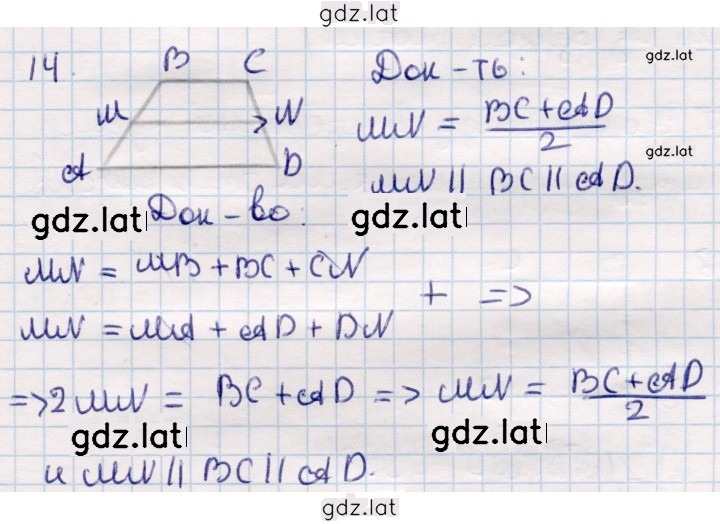 gdz.lat
14. B C Док-ть: gdz.lat
M N MN = BC + AD / 2
A D MN || BC || AD. gdz.lat
gdz.lat Док-во: gdz.lat
MN = MB + BC + CN
+ =>
MN = MA + AD + DN
=> 2MN = BC + AD => MN = BC + AD / 2
gdz.lat gdz.lat
и MN || BC || AD.
gdz.lat